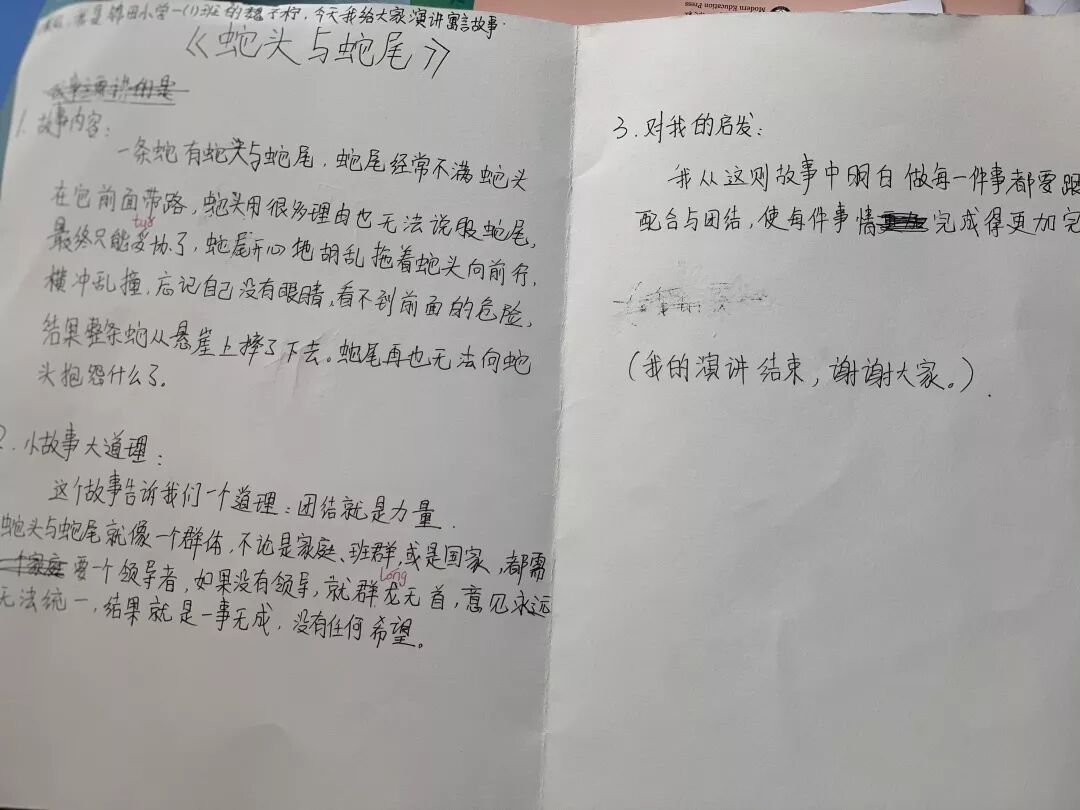 Modern Education Press
是锦田小学一(1)班的魏子柠,今天我给大家演讲寓言故事.
《蛇头与蛇尾》
故事主要讲的是
1. 故事内容:
一条蛇有蛇头与蛇尾,蛇尾经常不满蛇头
在它前面带路,蛇头用很多理由也无法说服蛇尾,
tuǒ
最终只能妥协了,蛇尾开心地胡乱拖着蛇头向前行,
横冲乱撞,忘记自己没有眼睛,看不到前面的危险,
结果整条蛇从悬崖上摔了下去。蛇尾再也无法向蛇
头抱怨什么了。
2. 小故事大道理:
这个故事告诉我们一个道理:团结就是力量.
蛇头与蛇尾就像一个群体,不论是家庭、班群,或是国家,都需
long
一个家庭要一个领导者,如果没有领导,就群龙无首,意见永远
无法统一,结果就是一事无成,没有任何希望。
3. 对我的启发:
我从这则故事中明白做每一件事都要跟
配合与团结,使每件事情完成得更加完
(我的演讲结束,谢谢大家。)